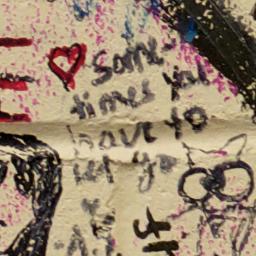 some-
times you
have to
let go